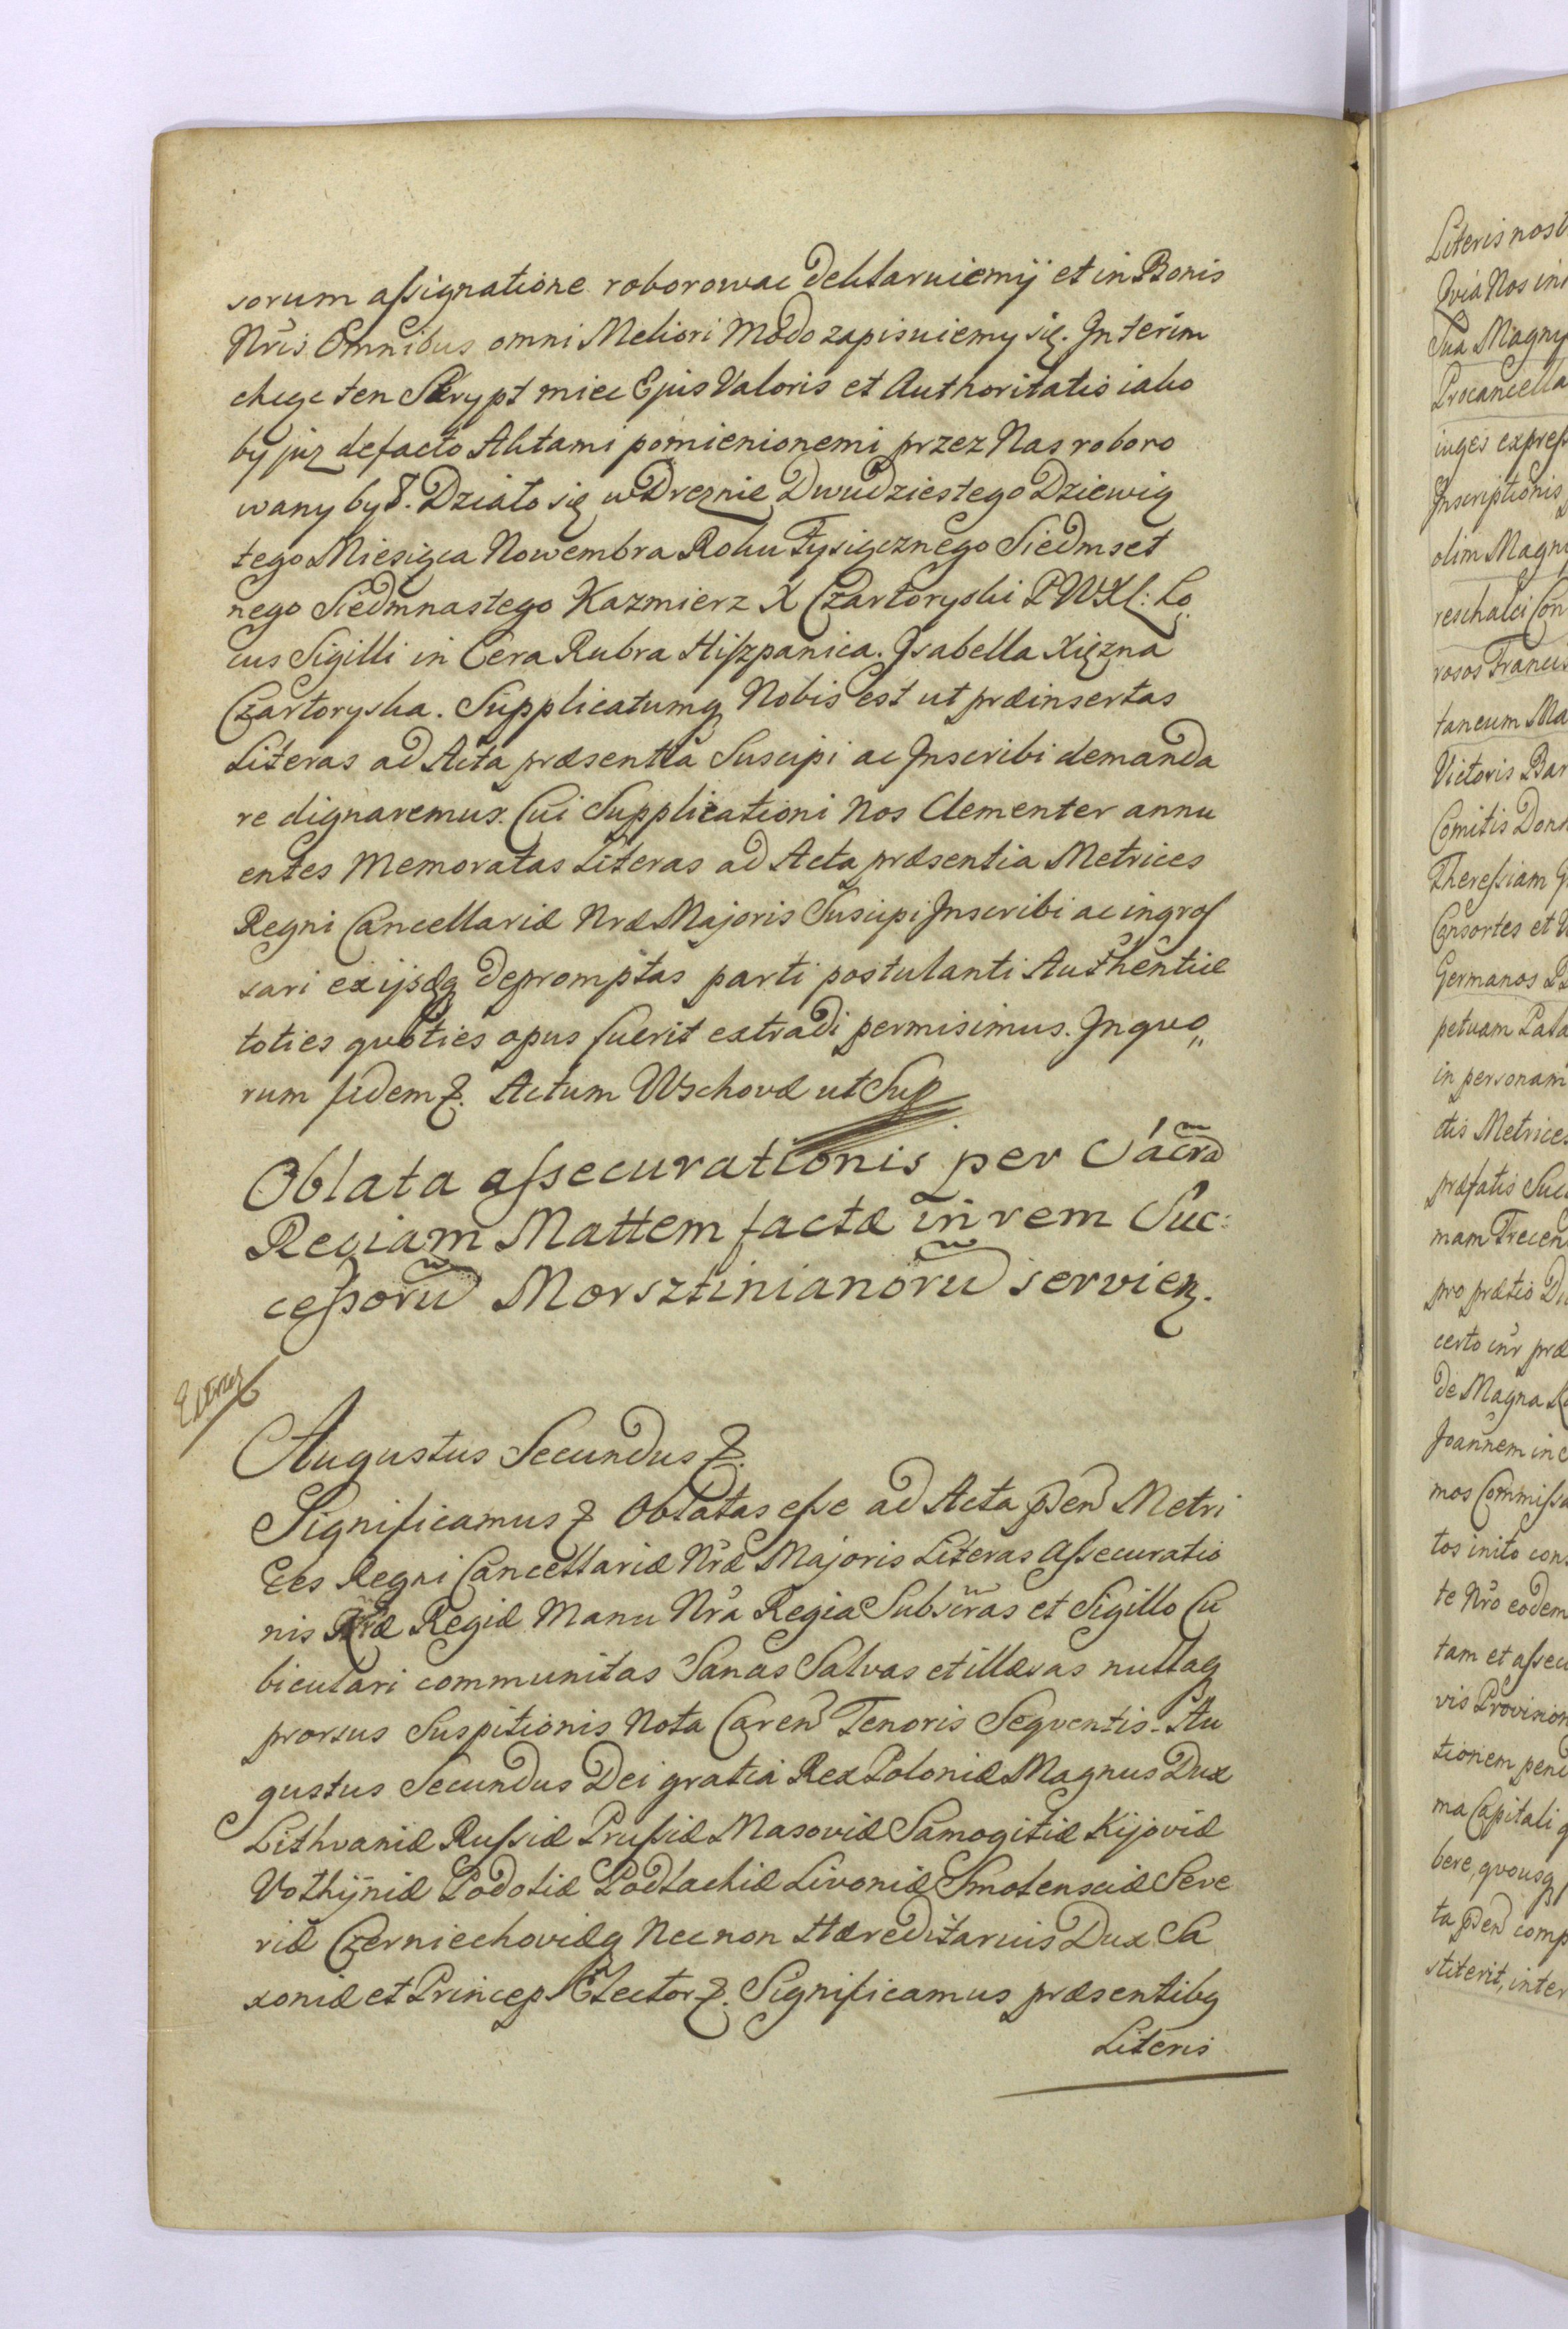 sorum assignatione roborowac deklaruiemÿ et in Bonis
Nris Omnibus omni Meliori Modo zapisuiemy się. Interim
chcąc ten Skrypt miec Ejus Valoris et Authoritatis iako
by juz de facto Aktami pomienionemi przez Nas roboro
wany był. Działo się w Dreznie Dwudziestego Dziewią
tego Miesiąca Nowembra Roku Tysiącznego Siedmset
nego Siedmnastego Kazmierz X Czartoryski P W X L: Lo
cus Sigilli in Cera Rubra Hiszpanica. Isabella Xięzna
Czartoryska. Supplicatumq Nobis est ut præinsertas
Literas ad Acta præsentia Suscipi ac Inscribi demanda
re dignaremus. Cui Supplicationi Nos Clementer annu
entes Memoratas Literas ad Acta præsentia Metrices
Regni Cancellariæ Nræ Majoris Suscipi Inscribi ac ingros
sari ex ijsdq depromptas parti postulanti Authentice
toties qvoties opus fuerit extradi permisimus. In qvo„
rum fidem &. Actum Wschovæ ut Sup
Oblata assecurationis per Sacra
Regiam Mattem factæ in rem Suc:
cessoru Morsztinianoru servien.
Extrax
Augustus Secundus &.
Significamus & Oblatas esse ad Acta pñ Metri
ces Regni Cancellariæ Nræ Majoris Literas Assecuratio
nis Nræ Regiæ Manu Nra Regia Subscras et Sigillo Cu
biculari communitas Sanas Salvas et illæsas nullaq
prorsus Suspitionis Nota Caren Tenoris Seqventis. Au
gustus Secundus Dei gratia Rex Poloniæ Magnus Dux
Lithvaniæ Russiæ Prussiæ Masoviæ Samogitiæ Kijoviæ
Volhijniæ Podoliæ Podlachiæ Livoniæ Smolensciæ Seve
riæ Czerniechoviæq Necnon Hæreditarius Dux Sa
xoniæ et Princeps Elector &. Significamus præsentibq
Literis
Literis nost
Qvia Nos in
Sua Magny
Procancella
iuges expres
Inscriptionis
olim Magn
reschalci Con
rosos Francis
taneum Ma
Victoris Bar
Comitis Don
Theressiam
Consortes et
Germanos
petuam Pala
in personam
ctis Metrices
præfatis Suc
mam Trecen
pro prætio Du
certo inr præ
de Magna
Joannem in
mos Commissa
tos inito cons
te Nro eodem
tam et assecu
vis Provision
tionem pene
ma Capitali q
bere, qvousq
ta pñ comp
stiterit, inter